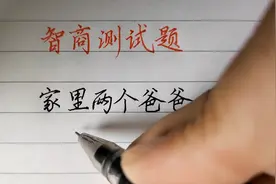 智商测试题
家里两个爸爸